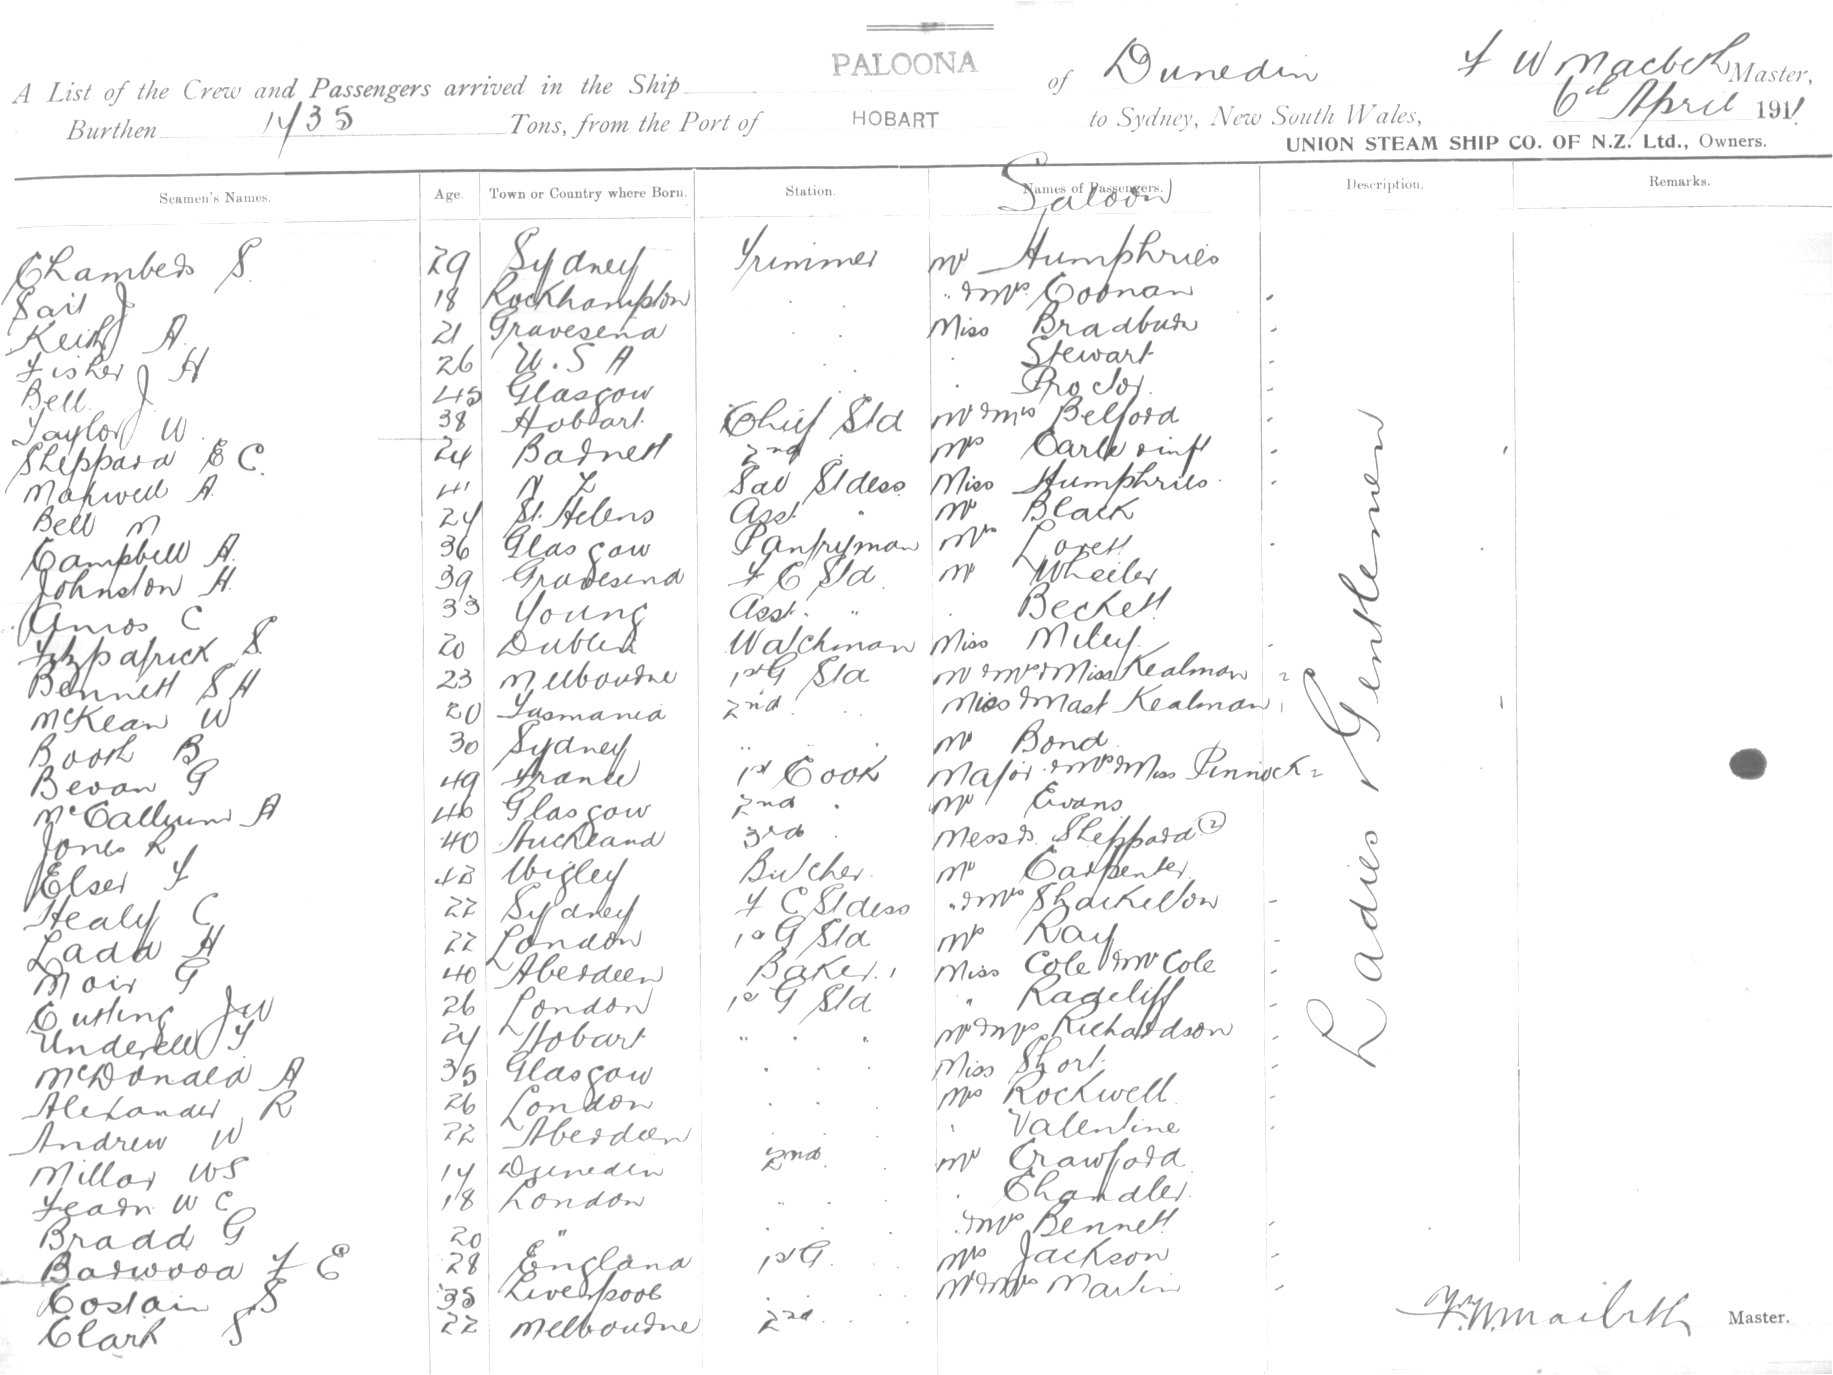 A List of the Crew and Passengers arrived in the Ship PALOONA of Dunedin F W Macbeth Master,
Burthen 1435 Tons, from the Port of HOBART to Sydney, New South Wales, 6th April 1911
UNION STEAM SHIP CO. OF N.Z. Ltd., Owners.
Seamen's Names. Age. Town or Country where Born. Station. Names of Passengers. Description. Remarks.
Saloon
Chambers S. 29 Sydney Trimmer Mr Humphries
Sait J 18 Rockhampton " " " & Mrs Coonan
Keith A. 21 Gravesend " " Miss Bradburn
Fisher H 26 U.S A " " " Stewart
Bell J 45 Glasgow " " " Proctor
Taylor W. 38 Hobart Chief Std Mr & Mrs Belford
Sheppard E C. 24 Barnett 2nd " Mrs Earle & inft
Maxwell A. 41 N Z Sal Stdess Miss Humphries
Bell M 24 St. Helens Asst " Mr Black
Campbell A. 36 Glasgow Pantryman Mrs Lovett
Johnston H. 39 Gravesend F C Std Mr Wheeler
Amos C 33 Young Asst. " " Beckett
Fitzpatrick S 20 Dublin Watchman Miss Miley
Bennett S H 23 Melbourne 1st G Std Mr & Mrs & Miss Kealman
McKean W 20 Tasmania 2nd " " Miss & Mast Kealman
Booth B 30 Sydney " " " Mr Bond
Bevan G 49 France 1st Cook Major & Mrs & Miss Pinnock
McCallum A 46 Glasgow 2nd " Mr Evans
Jones R 40 Auckland 3rd " Messrs Sheppard (2)
Elser F 43 Wigley Butcher Mr Carpenter
Healy C 22 Sydney F C Stdess " & Mrs Shackelton
Ladd H 22 London 1st G Std Mrs Ray
Moir G 40 Aberdeen Baker Miss Cole & Mr Cole
Cutting J W 26 London 1st G Std " Radcliff
Underell T 24 Hobart " " " Mr & Mrs Richardson
McDonald A 35 Glasgow " " " Miss Short
Alexander R 26 London " " " Mrs Rockwell
Andrew W 22 Aberdeen " " " " Valentine
Millar WS 14 Dunedin 2nd " " Mr Crawford
Fearn W C 18 London " " " " Chandler
Bradd G 20 " " " " " & Mrs Bennett
Barwood F E 28 England 1st G " " Mrs Jackson
Costain S 35 Liverpool " " " Mr & Mrs Martin
Clark S 22 Melbourne 2nd " "
Ladies & Gentlemen
F.W. Macbeth Master.